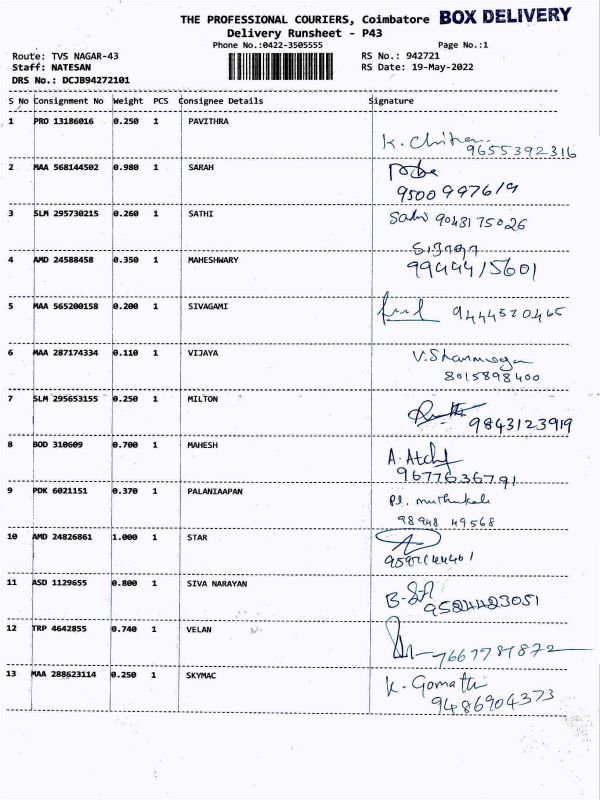 THE PROFESSIONAL COURIERS, Coimbatore BOX DELIVERY
Delivery Runsheet - P43
Phone No.:0422-3505555 Page No.:1
Route: TVS NAGAR-43 RS No.: 942721
Staff: NATESAN RS Date: 19-May-2022
DRS No.: DCJB94272101
S No Consignment No Weight PCS Consignee Details Signature
1 PRO 13186016 0.250 1 PAVITHRA
K. Chitra
9655392316
2 MAA 568144502 0.980 1 SARAH
9500997619
3 SLM 295730215 0.260 1 SATHI
Sathi 9043175026
4 AMD 24588458 0.350 1 MAHESHWARY
9944415601
5 MAA 565200158 0.200 1 SIVAGAMI
9444520465
6 MAA 287174334 0.110 1 VIJAYA
V. Shanmuga
8015898400
7 SLM 295653155 0.250 1 MILTON
9843123919
8 BOD 310609 0.700 1 MAHESH
A.
9677636791
9 PDK 6021151 0.370 1 PALANIAAPAN
Pl. muthukali
98948 49568
10 AMD 24826861 1.000 1 STAR
11 ASD 1129655 0.800 1 SIVA NARAYAN
9524423051
12 TRP 4642855 0.740 1 VELAN
7667781872
13 MAA 288623114 0.250 1 SKYMAC
K. Gomathi
9486904373